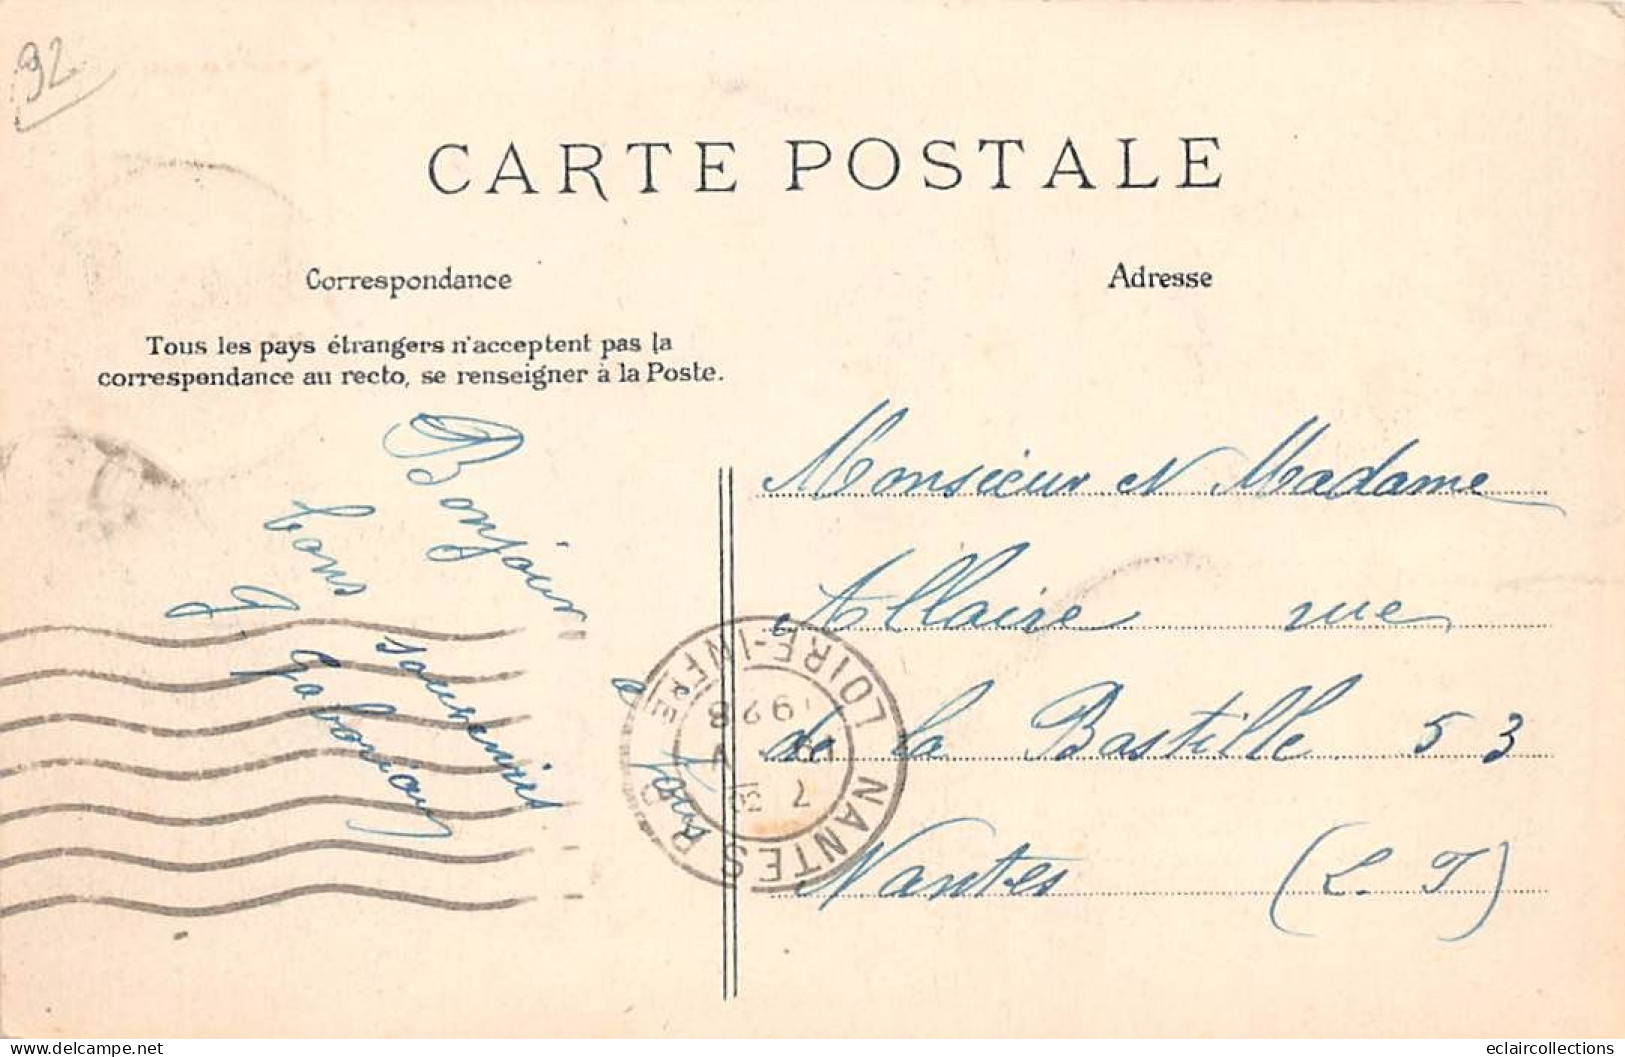 92
CARTE POSTALE
Correspondance
Adresse
Tous les pays étrangers n'acceptent pas la
correspondance au recto, se renseigner à la Poste.
Bonjour
bons souvenirs
à tous
Monsieur et Madame
Allaire rue
de la Bastille 53
Nantes (L. I)
NANTES R.P.
LOIRE-INFRE
7 30
19 4
1928
delcampe.net
eclaircollections